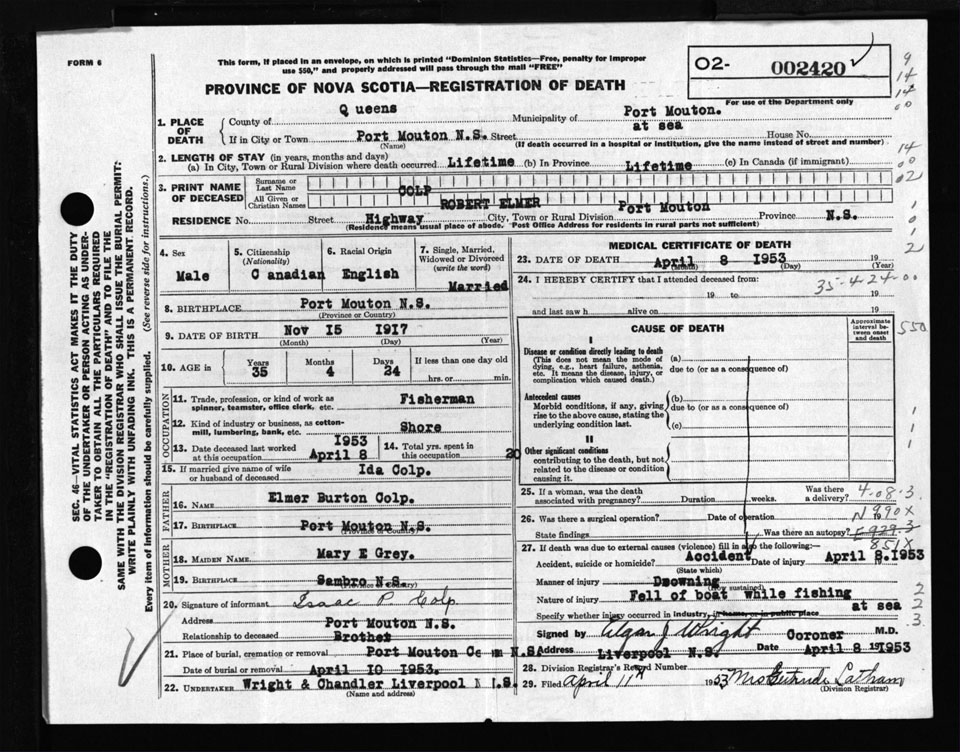 FORM 6
This form, if placed in an envelope, on which is printed "Dominion Statistics—Free, penalty for improper
use $50," and properly addressed will pass through the mail "FREE"
O2- 002420
For use of the Department only
PROVINCE OF NOVA SCOTIA—REGISTRATION OF DEATH
1. PLACE OF DEATH
County of Queens Municipality of Port Mouton.
at sea
If in City or Town Port Mouton N.S. Street House No.
(Name) (If death occurred in a hospital or institution, give the name instead of street and number)
2. LENGTH OF STAY (in years, months and days)
(a) In City, Town or Rural Division where death occurred Lifetime (b) In Province Lifetime (c) In Canada (if immigrant)
3. PRINT NAME OF DECEASED
Surname or Last Name COLP
All Given or Christian Names ROBERT ELMER
RESIDENCE No. Street Highway City, Town or Rural Division Port Mouton Province N.S.
(Residence means usual place of abode. Post Office Address for residents in rural parts not sufficient)
4. Sex
Male
5. Citizenship (Nationality)
C anadian
6. Racial Origin
English
7. Single, Married, Widowed or Divorced (write the word)
Married
8. BIRTHPLACE Port Mouton N.S.
(Province or Country)
9. DATE OF BIRTH Nov I5 I9I7
(Month) (Day) (Year)
10. AGE in
Years 35
Months 4
Days 24
If less than one day old
hrs. or min.
OCCUPATION
11. Trade, profession, or kind of work as
spinner, teamster, office clerk, etc. Fisherman
12. Kind of industry or business, as cotton-
mill, lumbering, bank, etc. Shore
13. Date deceased last worked
at this occupation I953 April 8
14. Total yrs. spent in
this occupation 20
15. If married give name of wife
or husband of deceased Ida Colp.
FATHER
16. NAME Elmer Burton Colp.
17. BIRTHPLACE Port Mouton N.S.
(Province or Country)
MOTHER
18. MAIDEN NAME Mary E Grey.
19. BIRTHPLACE Sambro N.S.
(Province or Country)
20. Signature of informant Isaac P Colp.
Address Port Mouton N.S.
Relationship to deceased Brother
21. Place of burial, cremation or removal Port Mouton Ce m N.S
Date of burial or removal April IO I953.
22. UNDERTAKER Wright & Chandler Liverpool N.S.
(Name and address)
MEDICAL CERTIFICATE OF DEATH
23. DATE OF DEATH April 8 I953 19
(Month) (Day) (Year)
24. I HEREBY CERTIFY that I attended deceased from:
35-4-24-00
19 to 19
and last saw h alive on 19
CAUSE OF DEATH
Approximate interval between onset and death
I
Disease or condition directly leading to death
(This does not mean the mode of
dying, e.g., heart failure, asthenia,
etc. It means the disease, injury, or
complication which caused death.)
(a)
due to (or as a consequence of)
Antecedent causes
Morbid conditions, if any, giving
rise to the above cause, stating the
underlying condition last.
(b)
due to (or as a consequence of)
(c)
II
Other significant conditions
contributing to the death, but not
related to the disease or condition
causing it.
25. If a woman, was the death
associated with pregnancy? Duration weeks. Was there a delivery?
4-08-3
26. Was there a surgical operation? Date of operation 19
N990X
State findings Was there an autopsy?
E929.3
851X
27. If death was due to external causes (violence) fill in also the following:—
Accident, suicide or homicide? Accident Date of injury April 8.I953
(State which)
Manner of injury Drowning
(How sustained)
Nature of injury Fell of boat while fishing
Specify whether injury occurred in industry, in home, or in public place at sea
Signed by Coroner M.D.
Address Liverpool N.S. Date April 8 I953
28. Division Registrar's Record Number
29. Filed April 11th 1953 Mrs Gertrude Latham
(Division Registrar)
SEC. 46—VITAL STATISTICS ACT MAKES IT THE DUTY
OF THE UNDERTAKER OR PERSON ACTING AS UNDER-
TAKER TO OBTAIN ALL THE PARTICULARS REQUIRED
IN THE "REGISTRATION OF DEATH" AND TO FILE THE
SAME WITH THE DIVISION REGISTRAR WHO SHALL ISSUE THE BURIAL PERMIT:
WRITE PLAINLY WITH UNFADING INK. THIS IS A PERMANENT RECORD.
Every item of information should be carefully supplied. (See reverse side for instructions.)
9
14
14
00
14
00
02
1
0
1
2
550
1
1
1
2
2
3